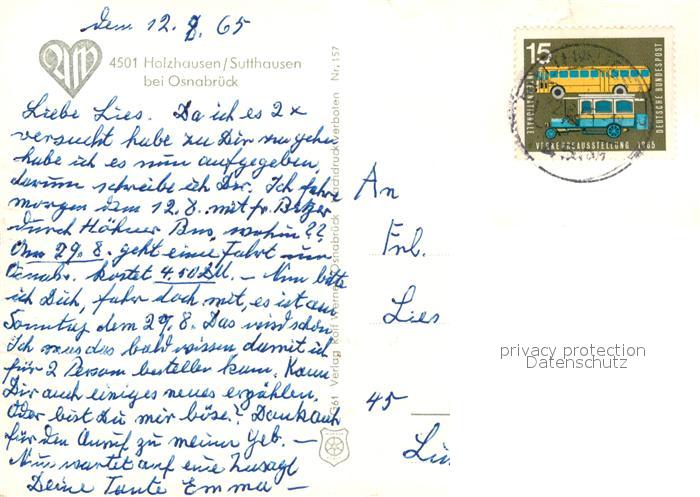 dem 12.8.65
4501 Holzhausen/Sutthausen
bei Osnabrück
Liebe Lies. Da ich es 2 x
versucht habe zu Dir zu gehn
habe ich es nun aufgegeben,
darum schreibe ich Dir. Ich fahre
morgen dem 12.8. mit fr.
durch Höhner Bus, wohin??
Am 29.8. geht eine Fahrt
Osnabr. kostet 4.50 DM. – Nun bitte
ich Dich, fahr doch mit, es ist am
Sonntag dem 29.8. Das wird schön
Ich mus das bald wissen damit ich
für 2 Person bestellen kann. Kann
Dir auch einiges neues erzählen.
Oder bist Du mir böse? Dank auch
für den Anruf zu meinem Geb. –
Nun wartet auf eine Zusage
Deine Tante Emma –
G61 Verlag Rolf Werner Osnabrück Nachdruck verboten Nr. 157
15
DEUTSCHE BUNDESPOST
INTERNATIONALE
VERKEHRSAUSSTELLUNG 1965
An
Frl.
Lies
45
privacy protection
Datenschutz